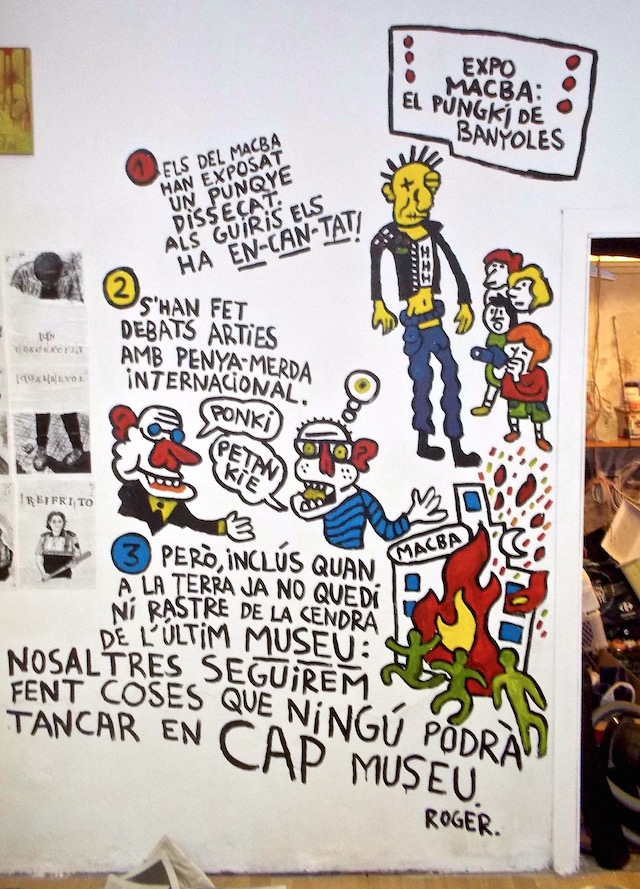 EXPO
MACBA:
EL PUNGKI DE
BANYOLES
1 ELS DEL MACBA
HAN EXPOSAT
UN PUNQYE
DISSECAT.
ALS GUIRIS ELS
HA EN-CAN-TAT!
2 S'HAN FET
DEBATS ARTIES
AMB PENYA-MERDA
INTERNACIONAL.
PONKI
PETAN
KIE
MACBA
3 PERÒ, INCLÚS QUAN
A LA TERRA JA NO QUEDI
NI RASTRE DE LA CENDRA
DE L'ÚLTIM MUSEU:
NOSALTRES SEGUIREM
FENT COSES QUE NINGÚ PODRÀ
TANCAR EN CAP MUSEU.
ROGER.
REIFRITO